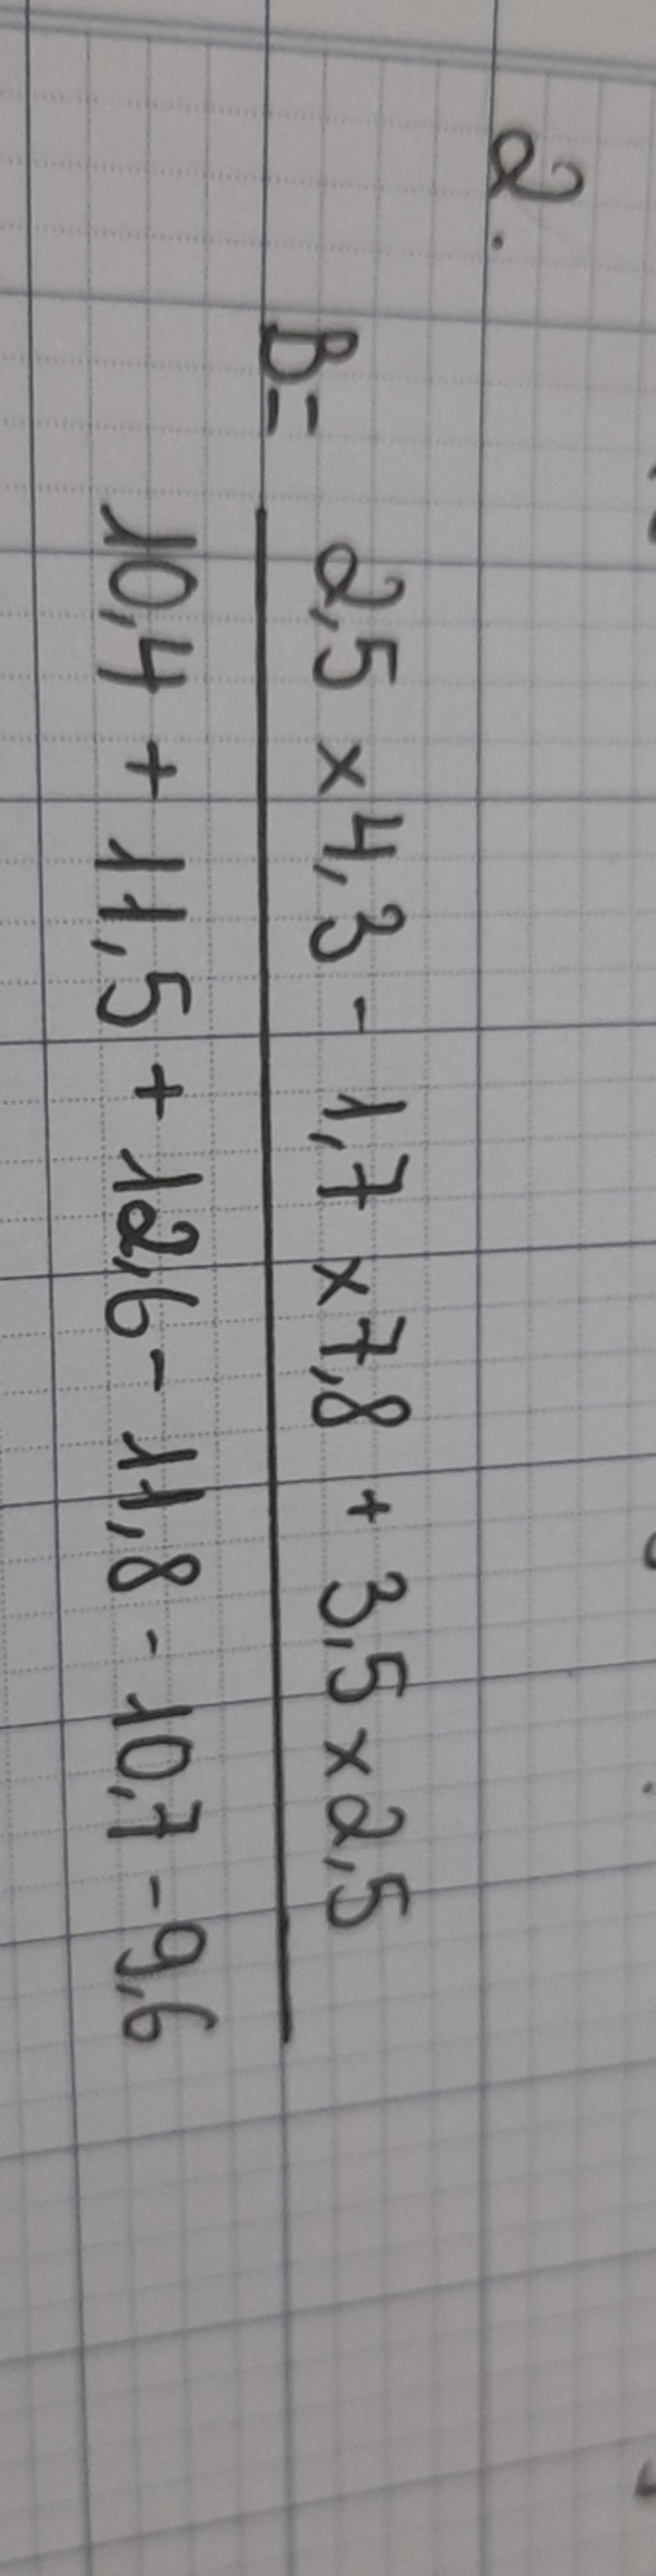 2.
B= 2,5 x 4,3 - 1,7 x 7,8 + 3,5 x 2,5
10,4 + 11,5 + 12,6 - 11,8 - 10,7 - 9,6